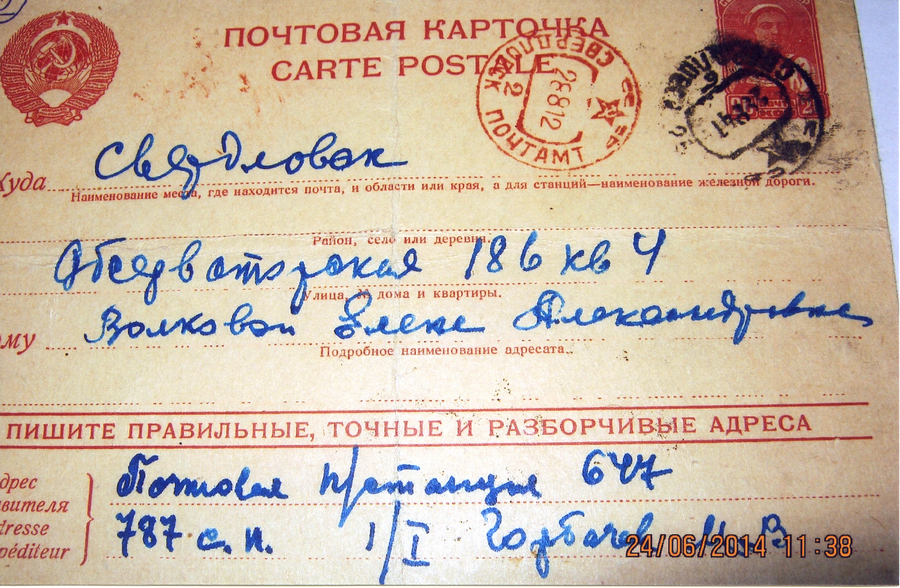 ПОЧТОВАЯ КАРТОЧКА
CARTE POSTALE
СВЕРДЛОВСК ПОЧТАМТ
2 28812
Куда Свердловск
Наименование места, где находится почта, и области или края, а для станций—наименование железной дороги.
Район, село или деревня.
Обсерваторская 186 кв 4
Улица, № дома и квартиры.
ому Волковой Елене Александровне
Подробное наименование адресата.
ПИШИТЕ ПРАВИЛЬНЫЕ, ТОЧНЫЕ И РАЗБОРЧИВЫЕ АДРЕСА
дрес
авителя
dresse
péditeur
Почтовая п/станция 647
787 с. п. 1/I Горбачев
24/06/2014 11:38